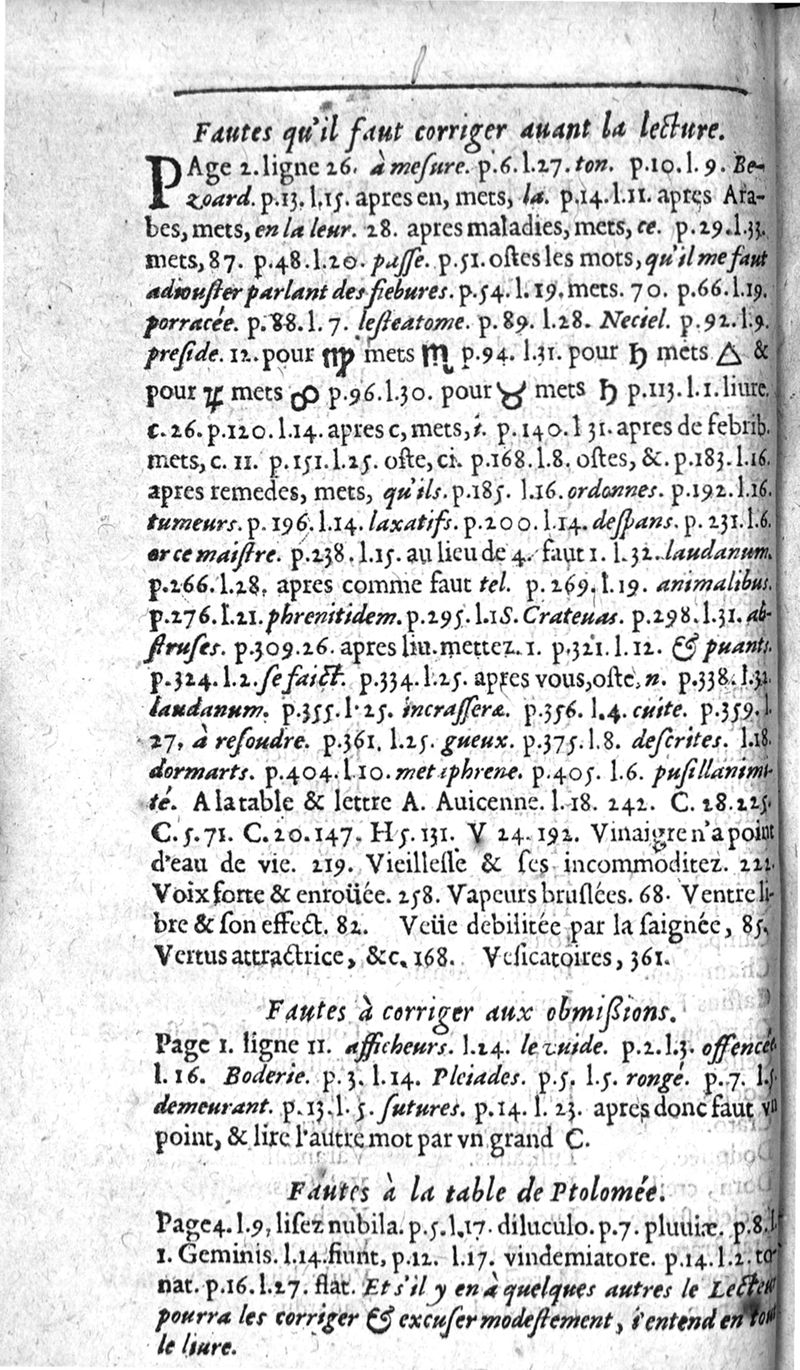 Fautes qu'il faut corriger auant la lecture.
PAge 2. ligne 26. à mesure. p.6.l.27. ton. p.10.l.9. Be-
zoard. p.13.l.15. apres en, mets, la. p.14.l.11. apres Ara-
bes, mets, en la leur. 28. apres maladies, mets, ce. p.29.l.33.
mets, 87. p.48.l.20. passe. p.51. ostes les mots, qu'il me faut
adiouster parlant des fiebures. p.54.l.19. mets. 70. p.66.l.19.
porracée. p.88.l.7. lesteatome. p.89. l.28. Neciel. p.92.l.9.
preside. 12. pour ♍ mets ♏ p.94. l.31. pour ♄ mets △ &
pour mets p.96.l.30. pour ♉ mets ♄ p.113.l.1. liure.
c.26. p.120.l.14. apres c, mets, i. p.140.l 31. apres de febrib.
mets, c. 11. p.151.l.25. oste, ci. p.168.l.8. ostes, &. p.183.l.16.
apres remedes, mets, qu'ils. p.185. l.16. ordonnes. p.192.l.16.
tumeurs. p.196.l.14. laxatifs. p.200.l.14. despans. p. 231.l.6.
or ce maistre. p.238.l.15. au lieu de 4. faut 1. l.32. laudanum.
p.266.l.28. apres comme faut tel. p.269.l.19. animalibus.
p.276.l.21. phrenitidem. p.295.l.1S. Crateuas. p.298.l.31. ab-
struses. p.309.26. apres liu. mettez. 1. p.321.l.12. & puants.
p.324.l.2. se faict. p.334.l.25. apres vous, oste, n. p.338.l.32.
laudanum. p.355.l.25. incrasseræ. p.356. l.4. cuite. p.359.l.
27, à resoudre. p.361. l.25. gueux. p.375.l.8. descrites. l.18.
dormarts. p.404.l.10. metaphrene. p.405. l.6. pusillanimi-
té. A la table & lettre A. Auicenne. l.18. 242. C. 28.225.
C.5.71. C.20.147. H 5.131. V 24.192. Vinaigre n'a point
d'eau de vie. 219. Vieillesse & ses incommoditez. 222.
Voix forte & enroüée. 258. Vapeurs bruslées. 68. Ventre li-
bre & son effect. 82. Veüe debilitée par la saignée, 85.
Vertus attractrice, &c. 168. Vesicatoires, 361.
Fautes à corriger aux obmissions.
Page 1. ligne 11. afficheurs. l.24. le vuide. p.2.l.3. offencét
l.16. Boderie. p.3. l.14. Pleiades. p.5. l.5. rongé. p.7. l.5.
demeurant. p.13.l.5. sutures. p.14. l. 23. apres donc faut vn
point, & lire l'autre mot par vn grand C.
Fautes à la table de Ptolomée.
Page 4. l.9, lisez nubila. p.5.l.17. diluculo. p.7. pluuiæ. p.8.l.
1. Geminis. l.14. fiunt, p.12. l.17. vindemiatore. p.14.l.2. to-
nat. p.16.l.27. flat. Et s'il y en à quelques autres le Lecteur
pourra les corriger & excuser modestement, s'entend en tout
le liure.